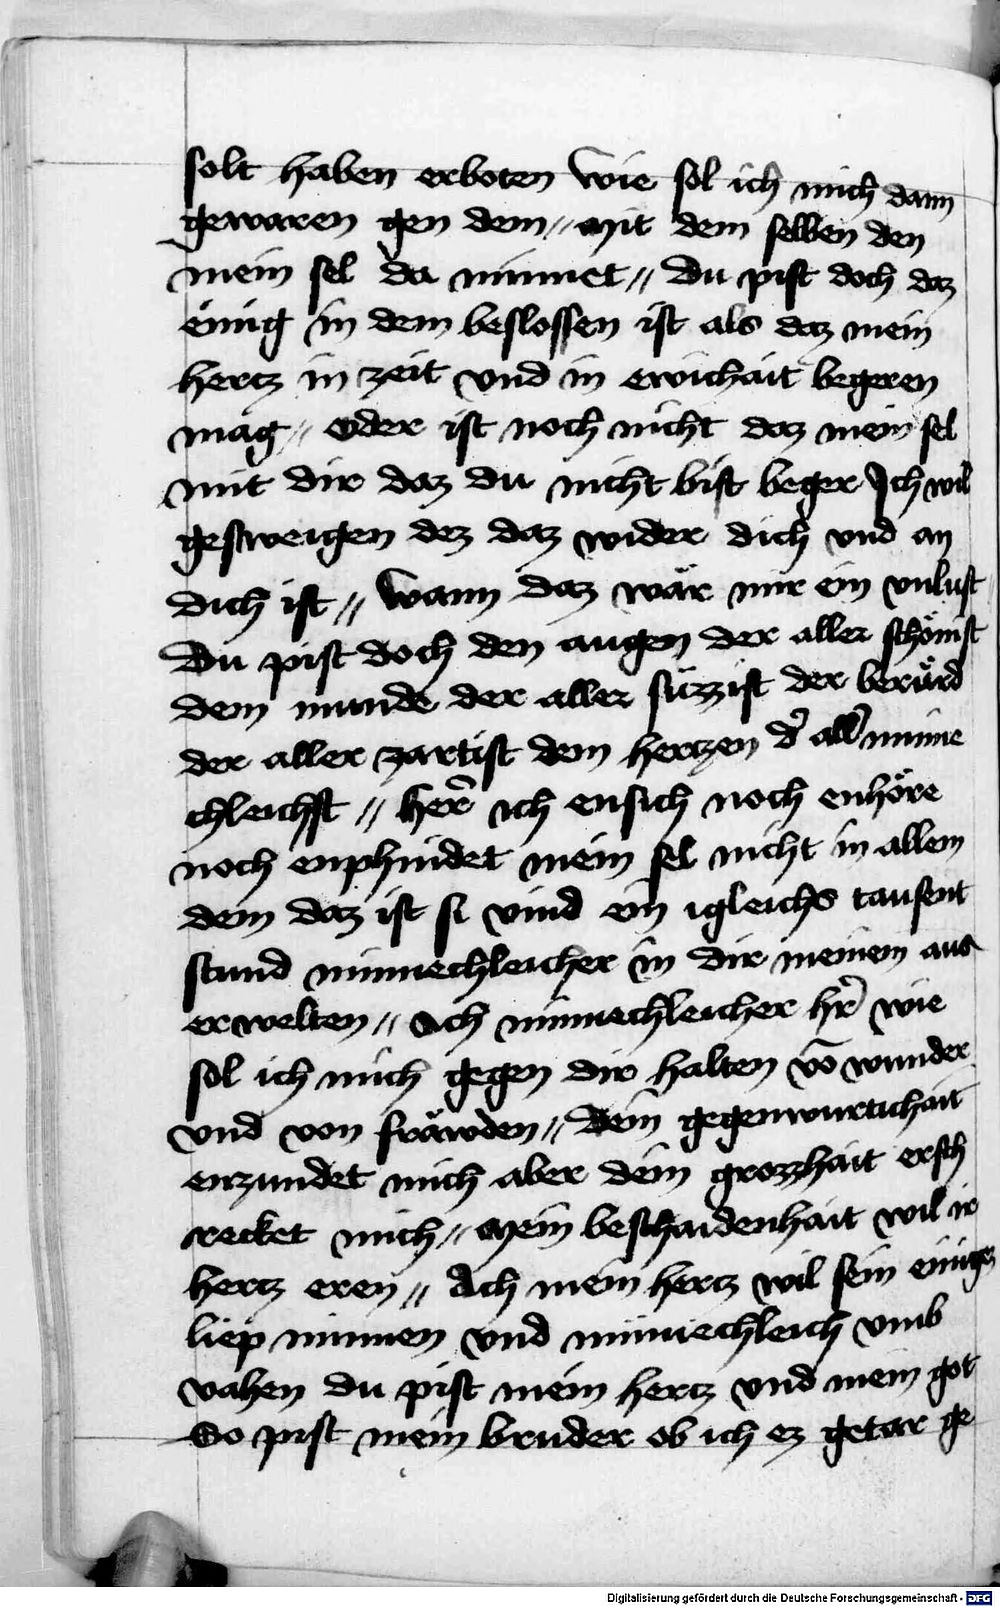 solt haben erboten wie sol ich mich dann
gewaren gen dem // Mit dem selben den
mein sel da minnet // Du pist doch daz
ainig in dem beslossen ist als daz mein
hertz in zeit vnd in ewichait begeren
mag // Oder ist noch nicht daz mein sel
mit dir daz du nicht bist beger Ich wil
gesweigen dez daz wider dich vnd an
dich ist // Wann daz wär mir ein vnlust
Du pist doch den augen der aller schönist
dem munde der aller süzzist der berürd
der aller zartist dem hertzen d̉ all̉ minne
chleichst // Her̉ ich ensich noch enhöre
noch enphindet mein sel nicht in allem
dem daz ist si vind ein igleichs tausent
stund minnechleicher in dir meinem aus
erwelten // Ach minnechleicher hr̉ wie
sol ich mich gegen dir halten vō wunder
vnd von fräwden // dein gegenwurtichait
enzundet mich aber dein grozzhait ersch
recket mich // Mein beschaidenhait wil ir
hertz eren // Ach mein hertz wil sein ainigs
liep minnen vnd minnechleich vmb
vahen du pist mein hertz vnd mein got
So pist mein bruder ob ich ez getar ge
Digitalisierung gefördert durch die Deutsche Forschungsgemeinschaft - DFG